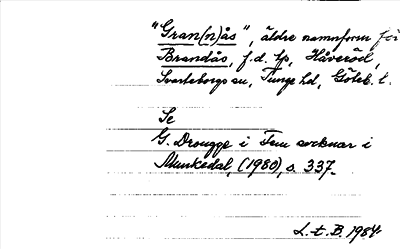 "Gran(n)ås", äldre namnform för
Brandås, f.d. tp, Håveröd,
Svarteborgs sn, Tunge hd, Göteb. l.
Se
G. Drougge i Fem socknar i
Munkedal, (1980), s. 337.
L.t.B. 1984